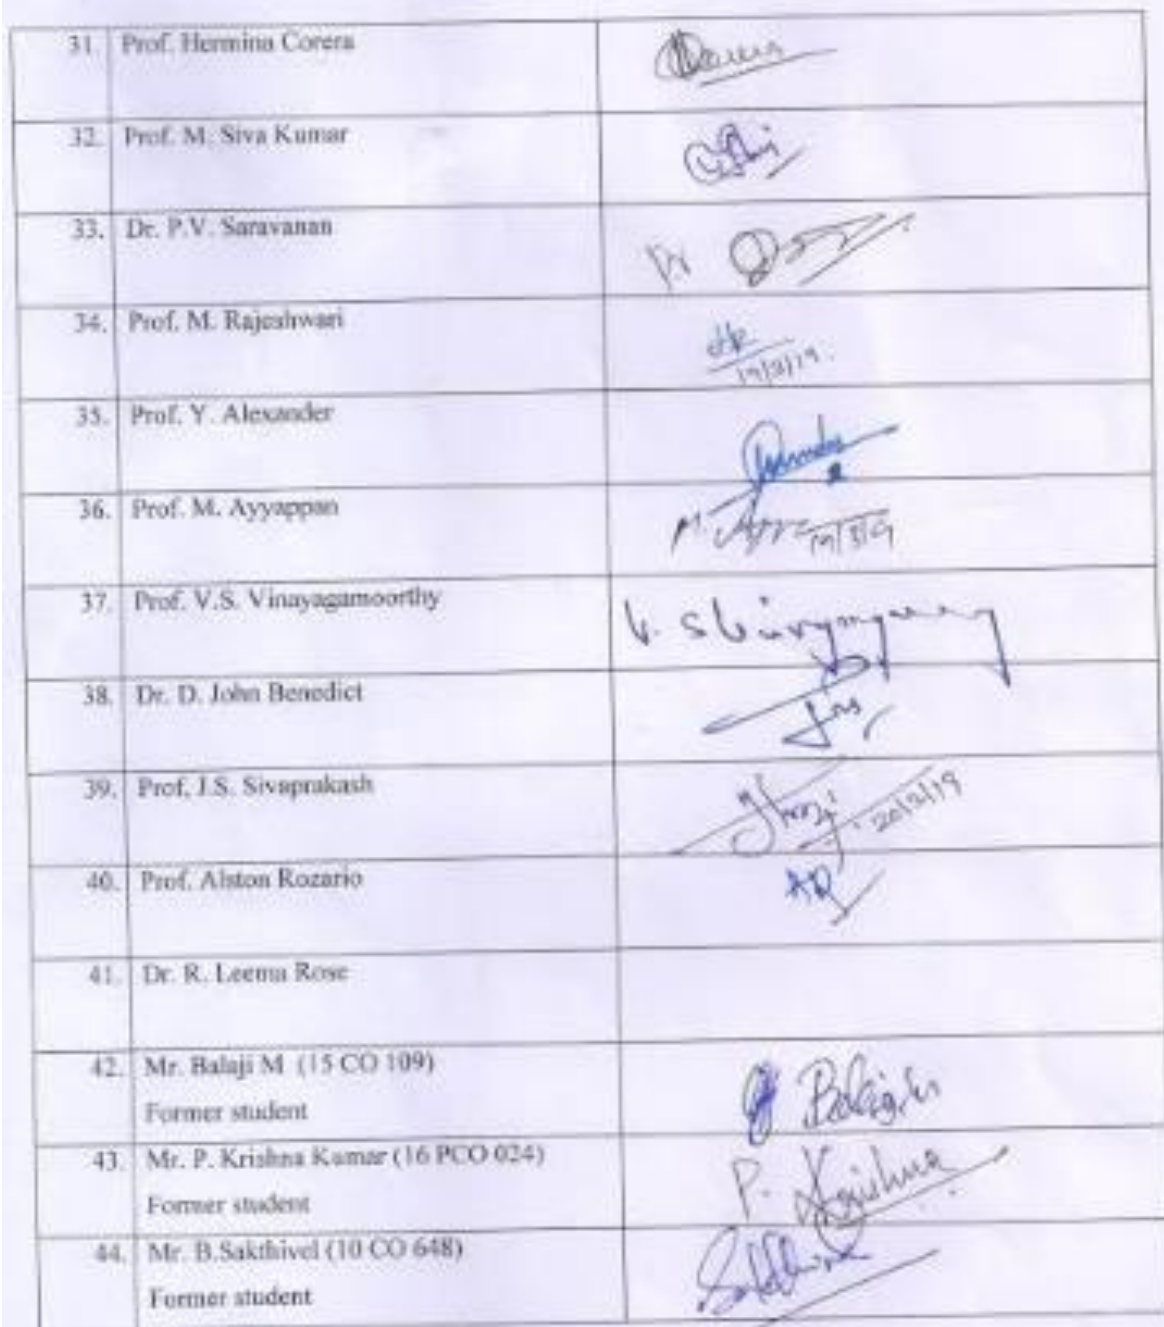 31. Prof. Hermina Corera
32. Prof. M. Siva Kumar
33. Dr. P.V. Saravanan
34. Prof. M. Rajeshwari
19/3/19.
35. Prof. Y. Alexander
36. Prof. M. Ayyappan
M.
37. Prof. V.S. Vinayagamoorthy
V. S
38. Dr. D. John Benedict
39. Prof. J.S. Sivaprakash
20/3/19
40. Prof. Alston Rozario
AR
41. Dr. R. Leema Rose
42. Mr. Balaji M (15 CO 109)
Former student
43. Mr. P. Krishna Kumar (16 PCO 024)
P. Krishna
Former student
44. Mr. B.Sakthivel (10 CO 648)
Former student